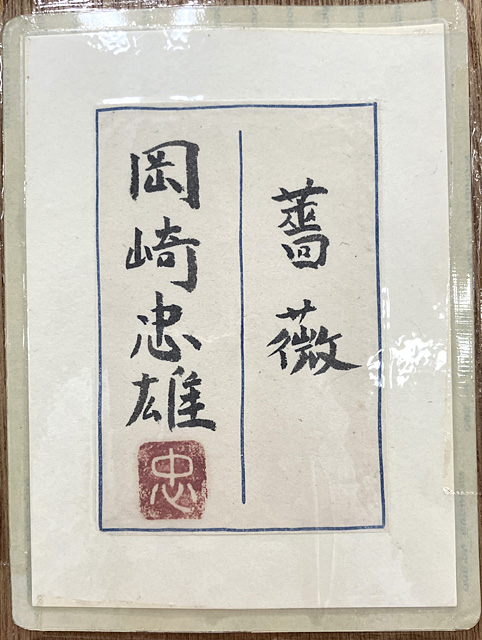 薔薇
岡崎忠雄
忠